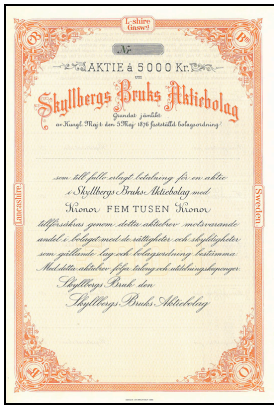 L-shire
Gnswg.
Nr
AKTIE á 5000 Kr.
om
Skyllbergs Bruks Aktiebolag
Grundat jämlikt
av Kungl. Maj:t den 5 Maj 1876 fastställd bolagsordning
som till fullo erlagt betalning för en aktie
i Skyllbergs Bruks Aktiebolag med
Kronor FEM TUSEN Kronor
tillförsäkras genom detta aktiebrev motsvarande
andel i bolaget med de rättigheter och skyldigheter
som gällande lag och bolagsordning bestämma
Med detta aktiebrev följa talong och utdelningskuponger.
Skyllbergs Bruk den
Skyllbergs Bruks Aktiebolag
Lancashire
Sweden